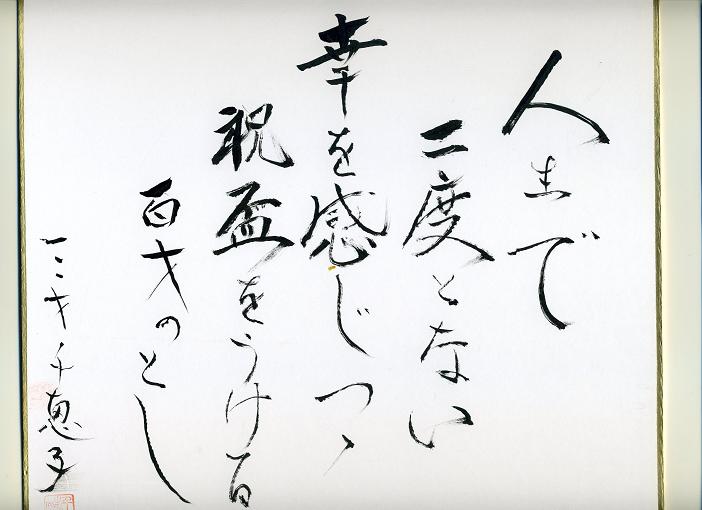 人生で
二度とない
幸を感じつゝ
祝盃をうける
百才のとし
一〇二才 千恵子